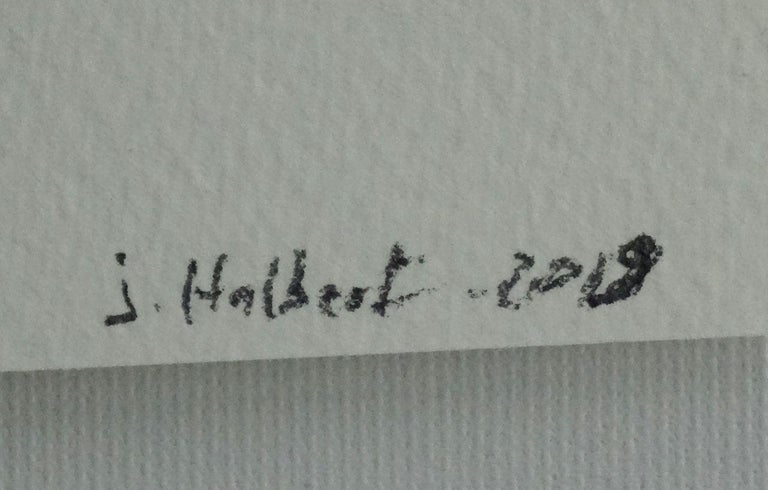 J. Halbert - 2019